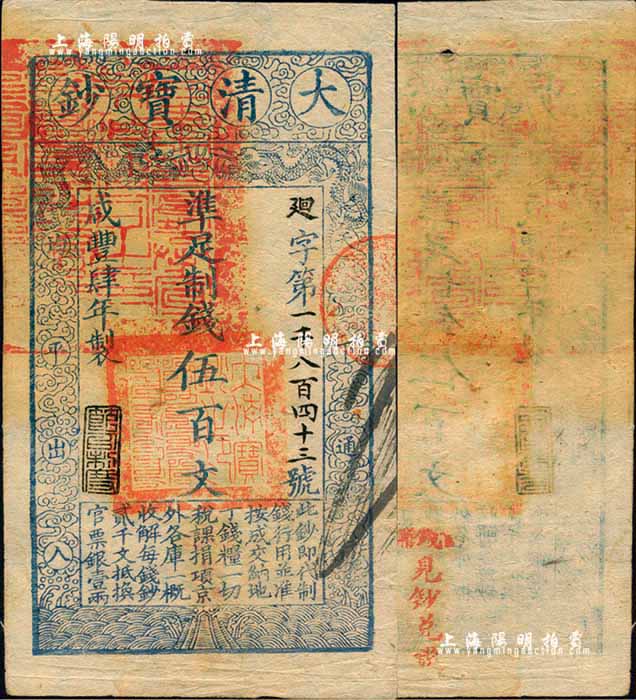 大清寶鈔
廻字第一千八百四十三號
準足制錢伍百文
咸豐肆年製
天下通行
均平出入
此鈔即代制
錢行用並准
按成交納地
丁錢糧一切
稅課捐項京
外各庫一概
收解每錢鈔
貳千文抵換
官票銀壹兩
見鈔兌
上海陽明拍賣
www.yangmingauction.com
上海陽明拍賣
www.yangmingauction.com
上海陽明拍賣
www.yangmingauction.com
上海陽明拍賣
www.yangmingauction.com